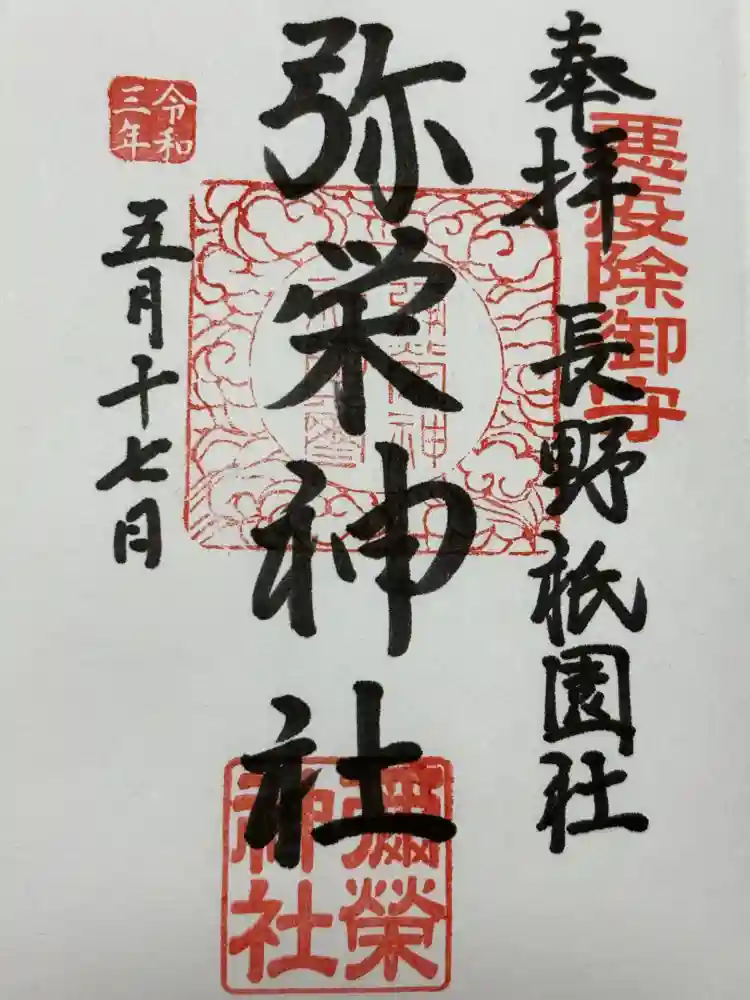 奉拝 長野祇園社
悪疫除御守
弥栄神社
彌榮
神社
令和
三年
五月十七日